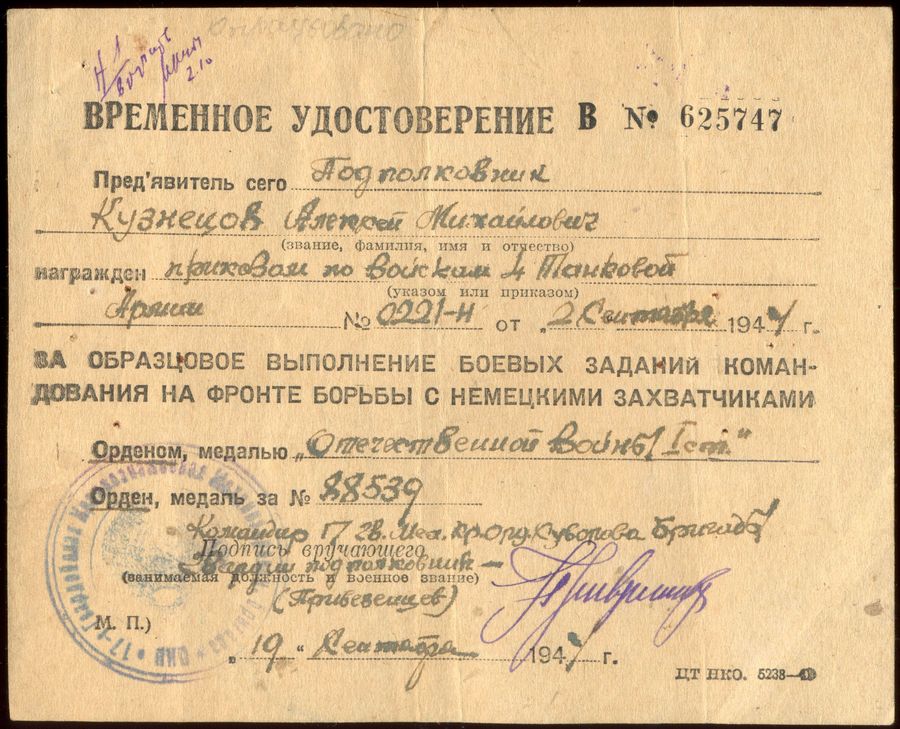 оприходовано
ВРЕМЕННОЕ УДОСТОВЕРЕНИЕ В № 625747
Пред'явитель сего Подполковник
Кузнецов Алексей Михайлович
(звание, фамилия, имя и отчество)
награжден приказом по войскам 4 Танковой
(указом или приказом)
Армии № 0221-Н от „2 Сентября 1944 г.
ЗА ОБРАЗЦОВОЕ ВЫПОЛНЕНИЕ БОЕВЫХ ЗАДАНИЙ КОМАН-
ДОВАНИЯ НА ФРОНТЕ БОРЬБЫ С НЕМЕЦКИМИ ЗАХВАТЧИКАМИ
Орденом, медалью „Отечественной Войны I ст."
Орден, медаль за № 88539
Командир 17 Гв. Мех. Кр. Орд. Кутузова Бригады
Подпись вручающего
Гвардии подполковник —
(занимаемая должность и военное звание)
(Прибеженцев)
М. П.)
„19" Сентября 1944 г.
ЦТ НКО. 5238—